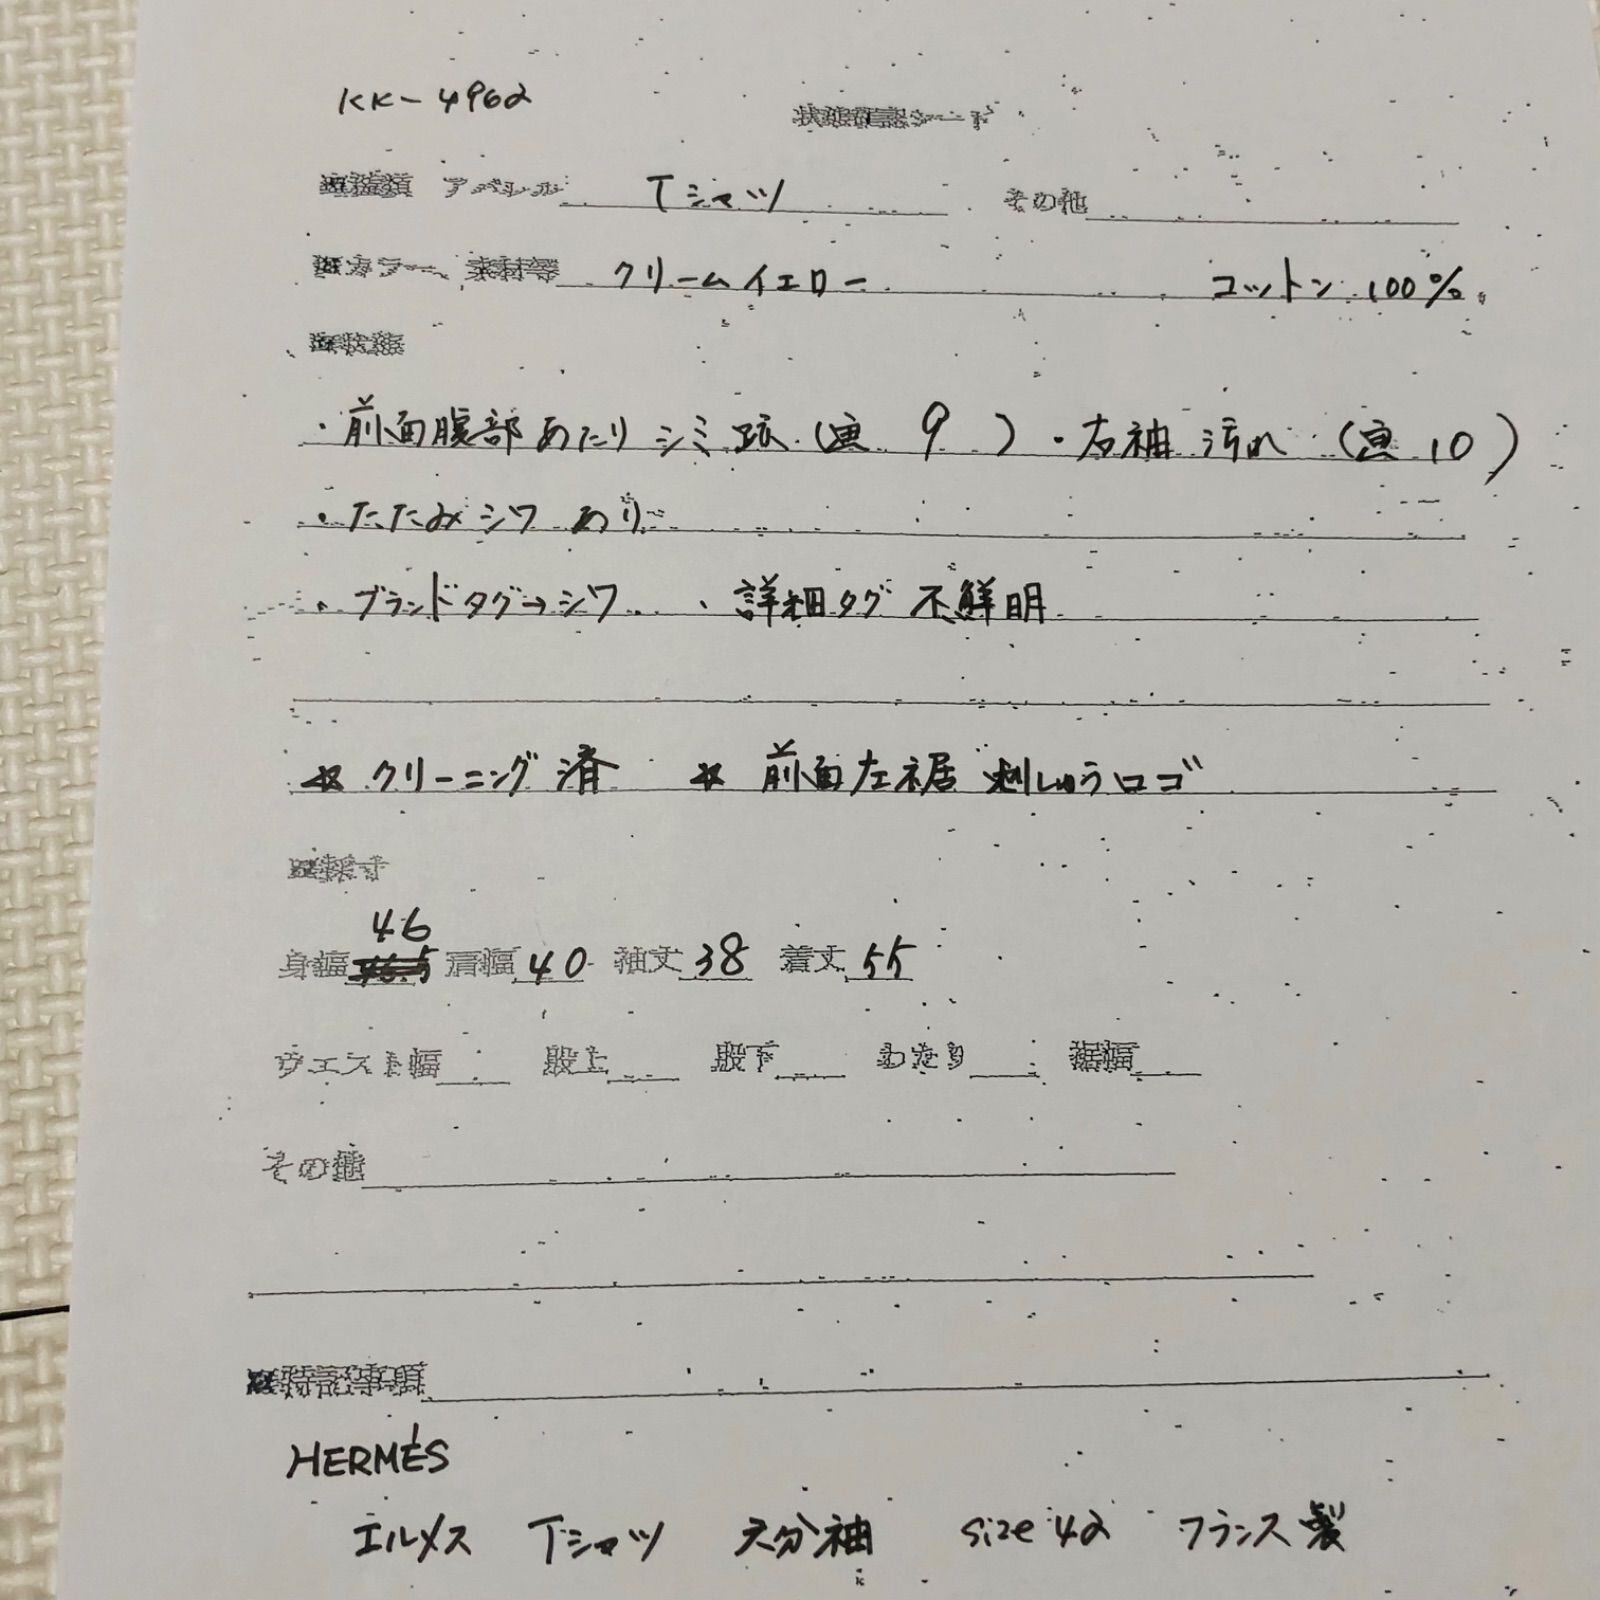 KK-4962
状態確認シート
アパレル Tシャツ その他
カラー、素材等 クリームイエロー コットン 100%
状態
・前面腹部あたり シミ跡 (画 9 ) ・右袖 汚れ (画 10 )
・たたみシワ あり
・ブランドタグ→シワ ・詳細タグ 不鮮明
* クリーニング済 * 前面左裾 刺しゅうロゴ
採寸
46
身幅 肩幅 40 袖丈 38 着丈 55
ウエスト幅 股上 股下 わたり 裾幅
その他
特記事項
HERMÈS
エルメス Tシャツ 六分袖 size 42 フランス製